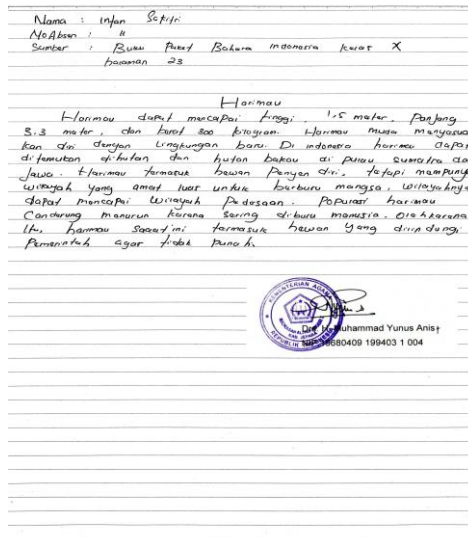 Nama : Intan Safitri
No Absen : 11
Sumber : Buku Paket Bahasa Indonesia Kelas X
halaman 23
Harimau
Harimau dapat mencapai tinggi 1,5 meter, Panjang
3.3 meter, dan berat 300 kilogram. Harimau mudah menyesuai
kan diri dengan lingkungan baru. Di indonesia harimau dapat
ditemukan dihutan dan hutan bakau di pulau sumatra da
Jawa. Harimau termasuk hewan Penyendiri, tetapi mempuny
wilayah yang amat luas untuk berburu mangsa, wilayahnya
dapat mencapai wilayah Pedesaan. Populasi harimau
Cenderung menurun karena sering diburu manusia. Oleh karena
itu, harimau saat ini termasuk hewan yang dilindungi
Pemerintah agar tidak punah.
KEMENTERIAN AGAMA
REPUBLIK INDONESIA
Drs. H. Muhammad Yunus Anis
NIP. 19680409 199403 1 004